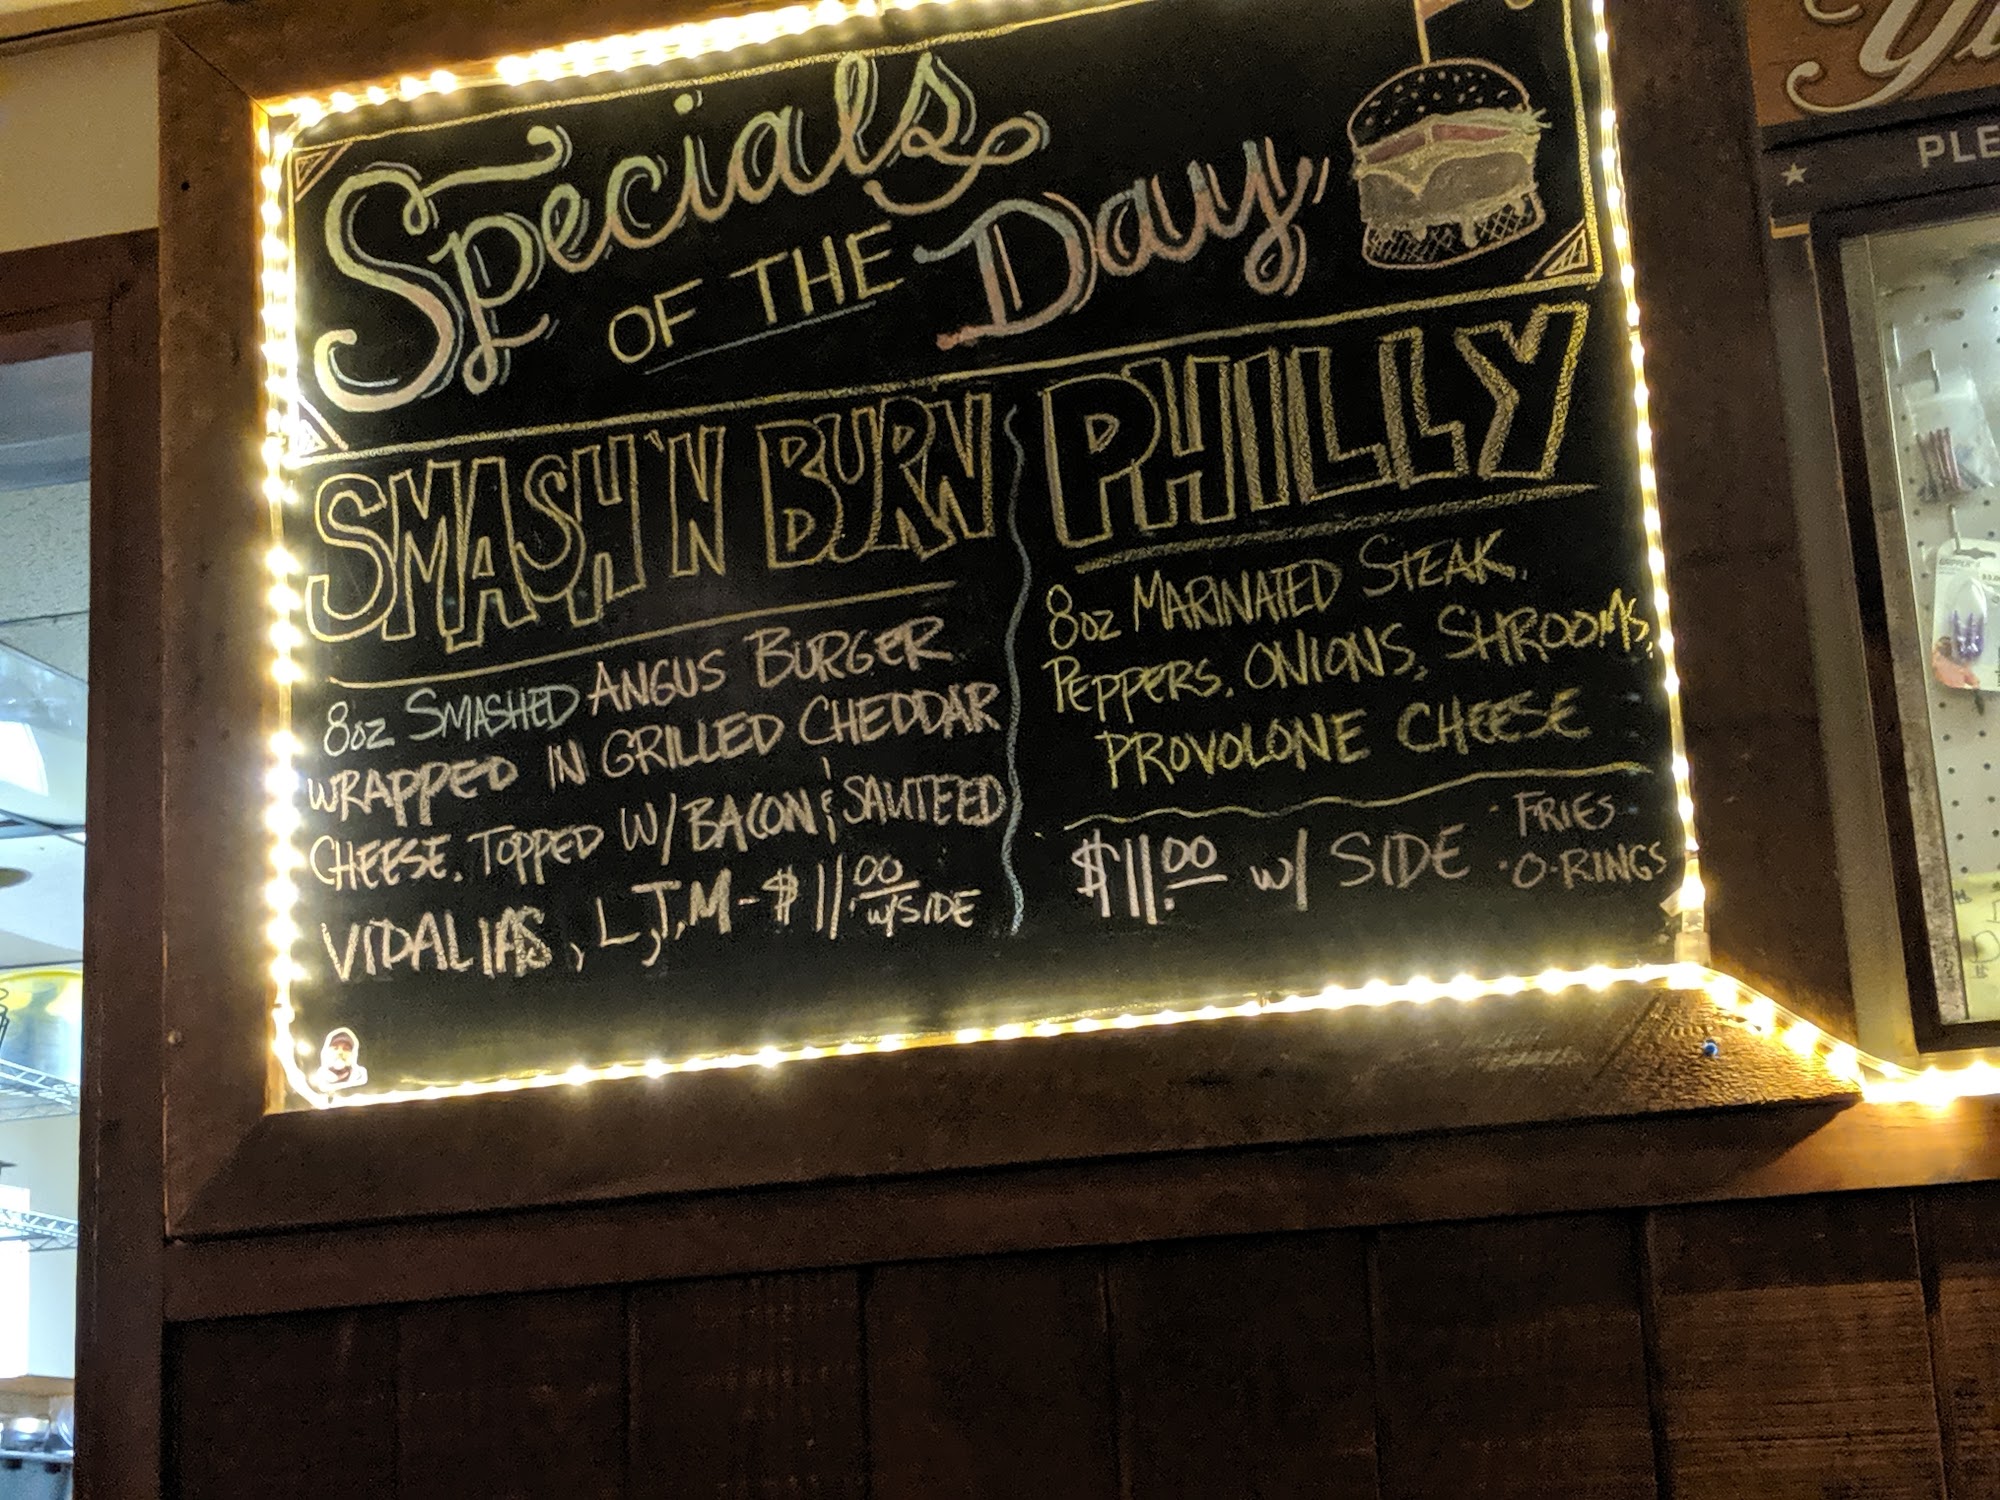 Specials
OF THE Day
SMASH'N BURN
8oz SMASHED ANGUS BURGER
WRAPPED IN GRILLED CHEDDAR
CHEESE. TOPPED W/ BACON & SAUTEED
VIDALIAS, L,T,M - $11.00 w/SIDE
PHILLY
8oz MARINATED STEAK,
PEPPERS, ONIONS, SHROOMS,
PROVOLONE CHEESE
$11.00 w/ SIDE · FRIES
· O-RINGS
PLE